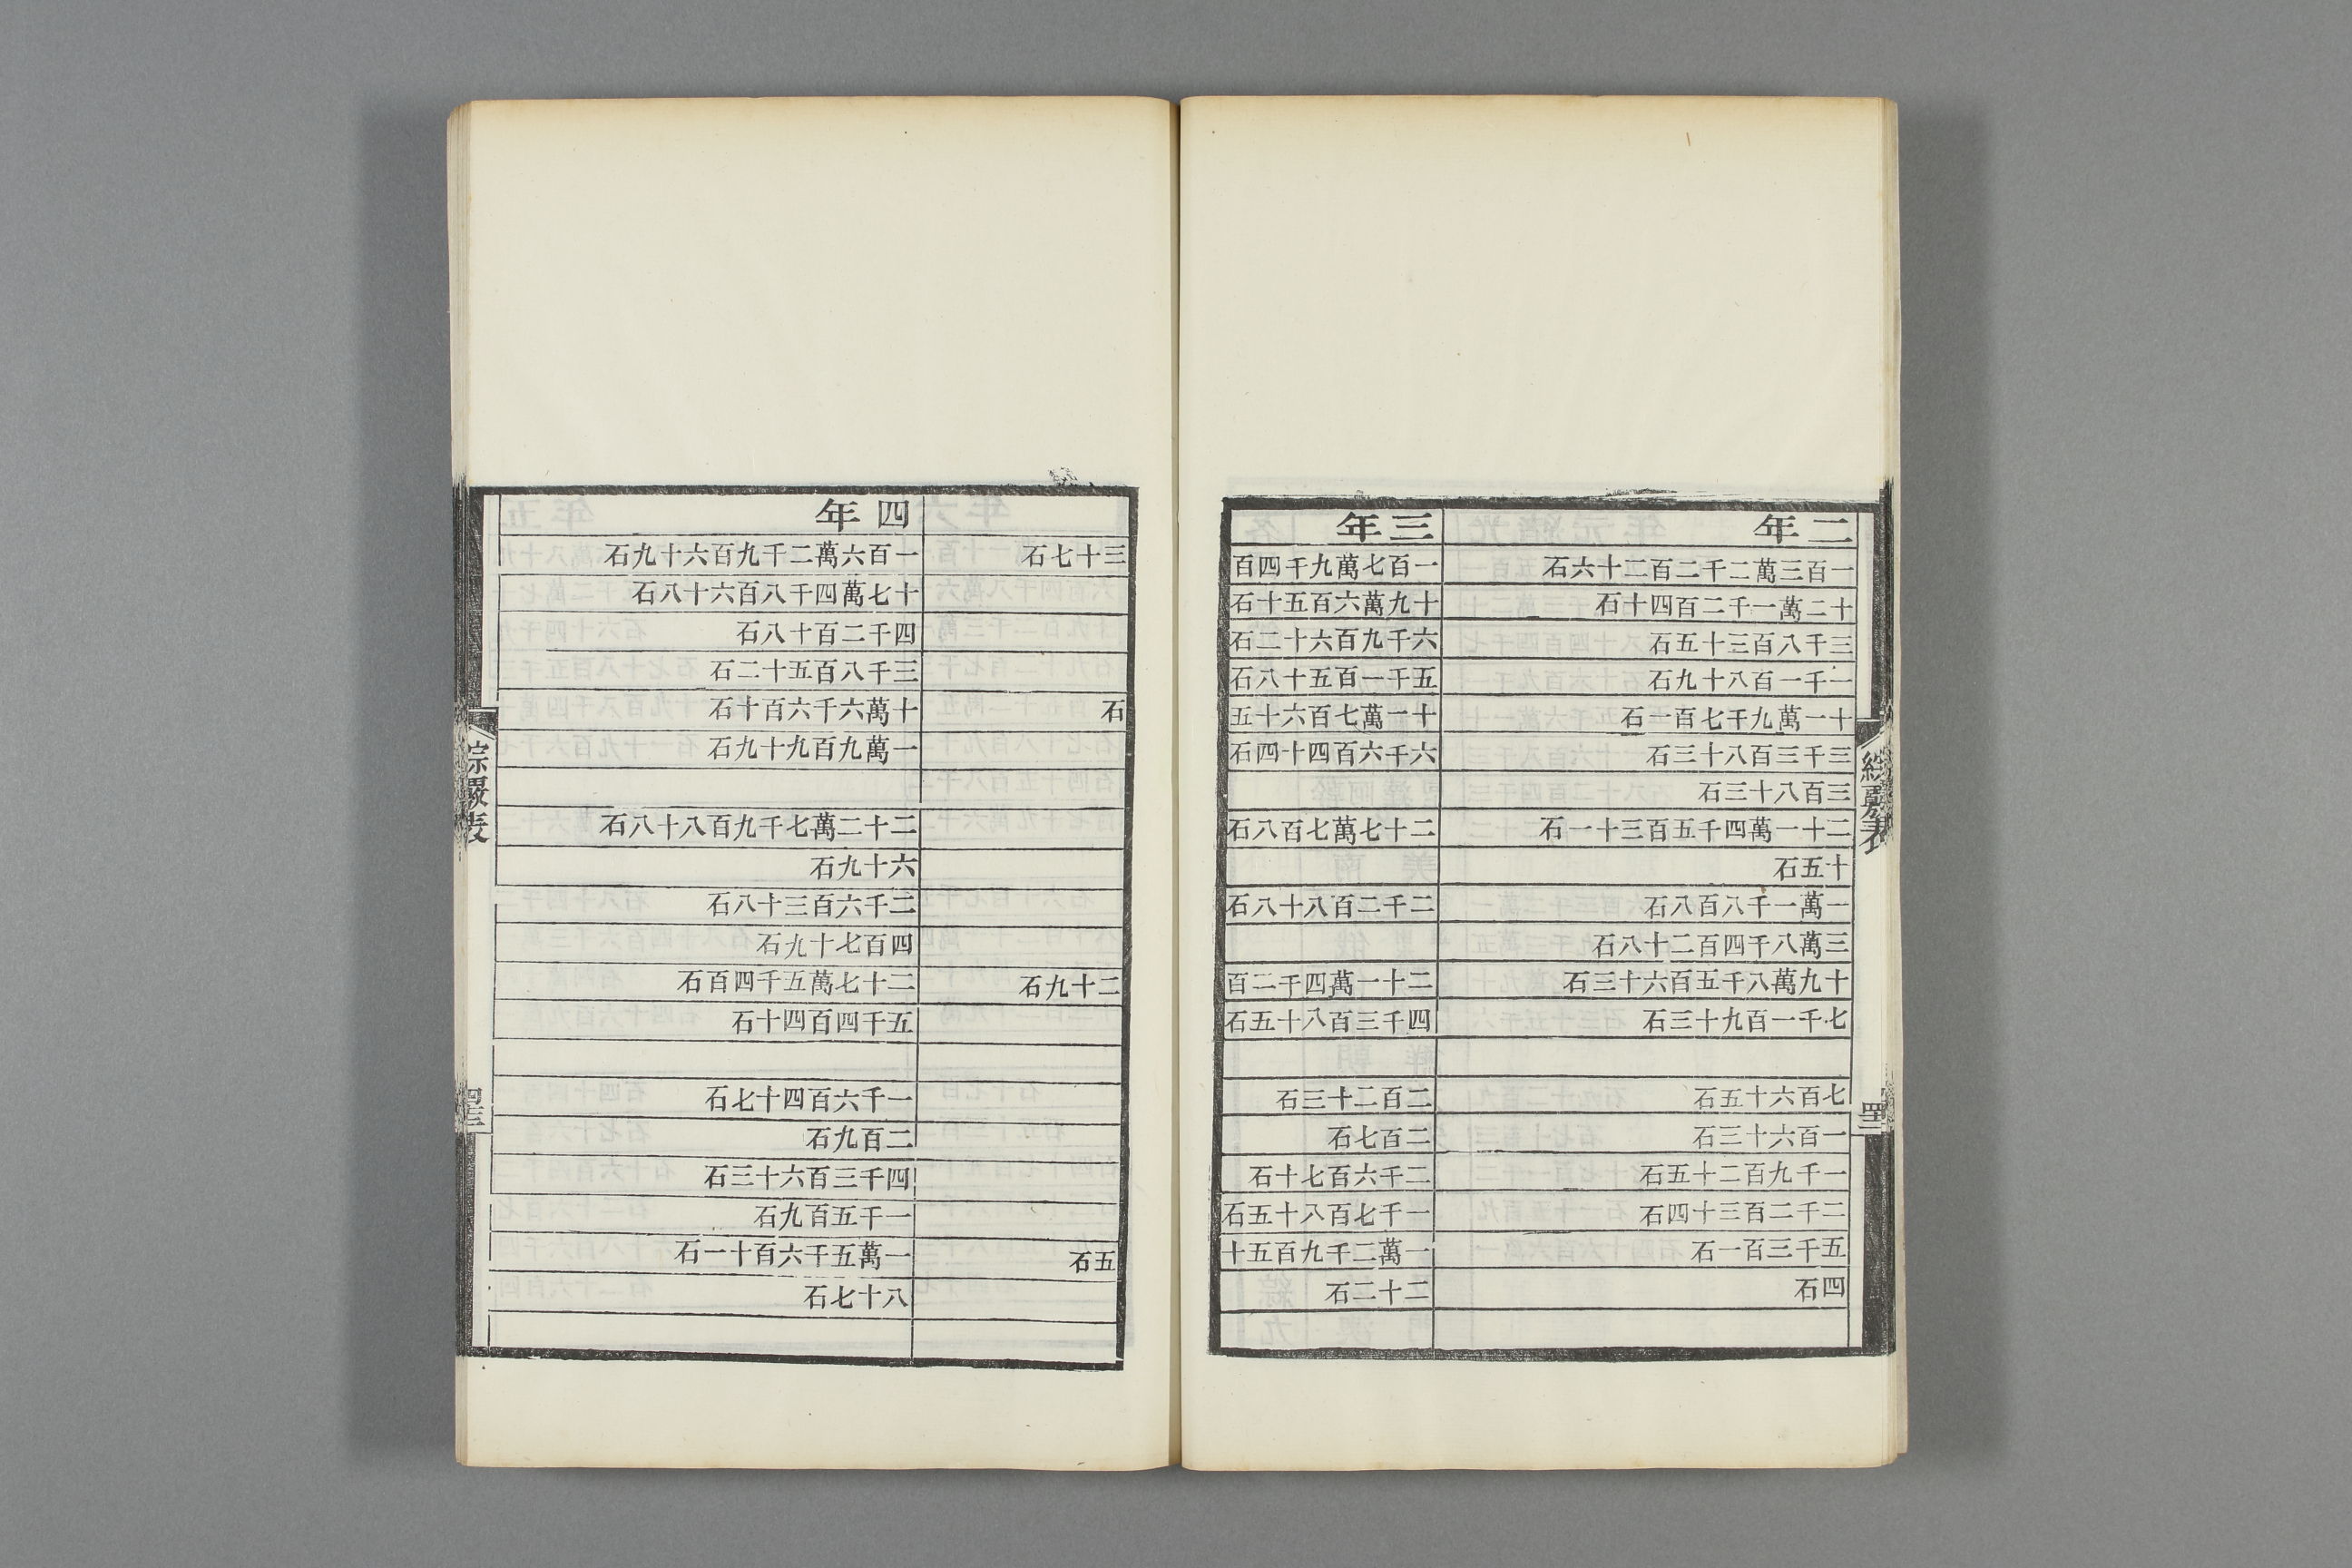 綜覈表
二年
一百三萬二千二百二十六石
十二萬一千二百四十石
三千八百三十五石
一千一百八十九石
十一萬九千七百一石
三千三百八十三石
三百八十三石
二十一萬四千五百三十一石
十五石
一萬一千八百八石
三萬八千四百二十八石
十九萬八千五百六十三石
七千一百九十三石
七百六十五石
一百六十三石
一千九百二十五石
二千二百三十四石
五千三百一石
四石
三年
一百七萬九千四百
十九萬六百五十石
六千九百六十二石
五千一百五十八石
十一萬七百六十五
六千六百四十四石
二十七萬七百八石
二千二百八十八石
二十一萬四千二百
四千三百八十五石
二百二十三石
二百七石
二千六百七十石
一千七百八十五石
一萬二千九百五十
二十二石
三十七石
石
二十九石
五石
四年
一百六萬二千九百六十九石
十七萬四千八百六十八石
四千二百十八石
三千八百五十二石
十萬六千六百十石
一萬九百九十九石
二十二萬七千九百八十八石
六十九石
二千六百三十八石
四百七十九石
二十七萬五千四百石
五千四百四十石
一千六百四十七石
二百九石
四千三百六十三石
一千五百九石
一萬五千六百十一石
八十七石
綜覈表